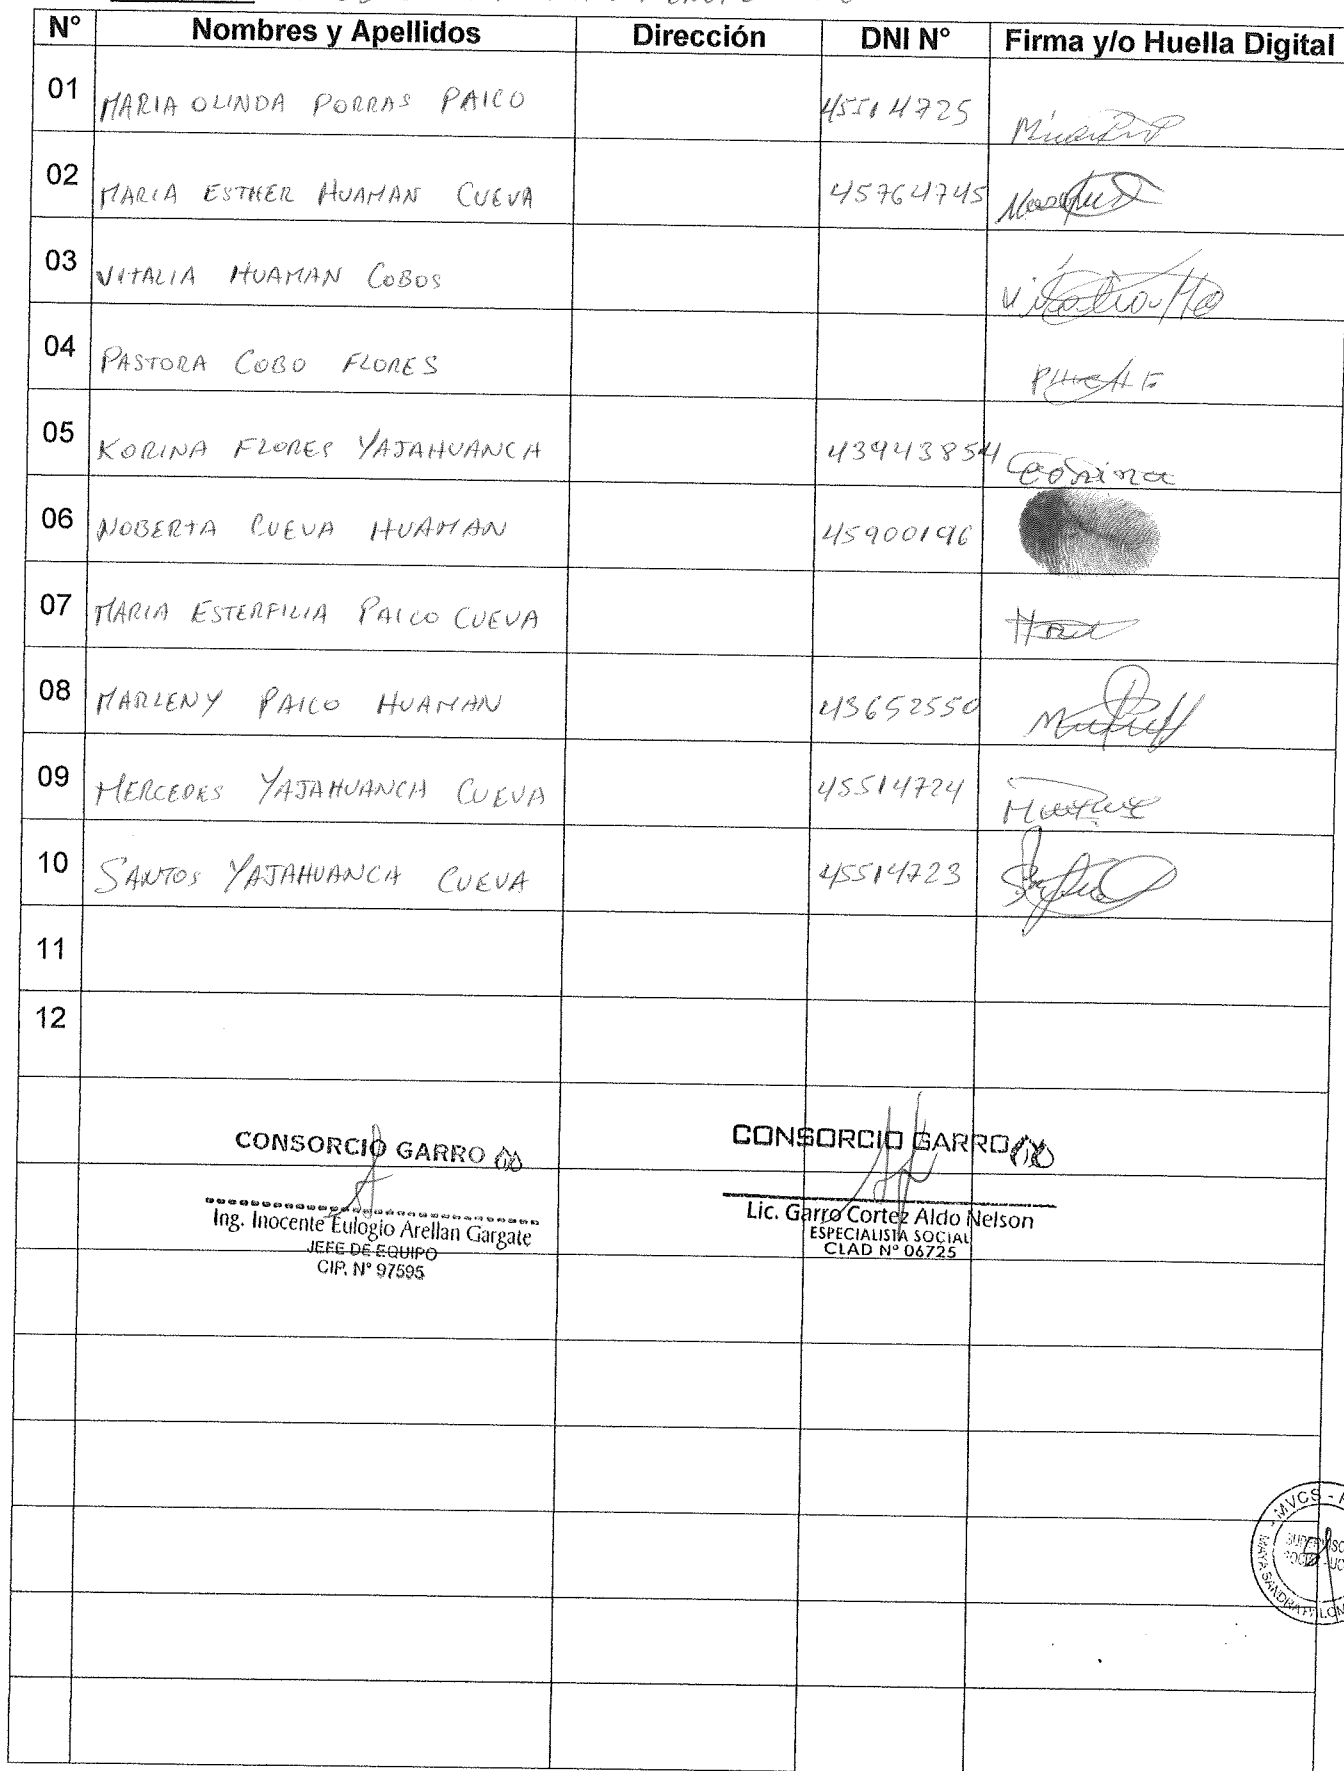 N° Nombres y Apellidos Dirección DNI N° Firma y/o Huella Digital
01 MARIA OLINDA PORRAS PAICO 45514725
02 MARIA ESTHER HUAMAN CUEVA 45764745
03 VITALIA HUAMAN COBOS
04 PASTORA COBO FLORES
05 KORINA FLORES YAJAHUANCA 43943854 Corina
06 NOBERTA CUEVA HUAMAN 45900196
07 MARIA ESTERFILIA PAICO CUEVA
08 MARLENY PAICO HUAMAN 43652550
09 MERCEDES YAJAHUANCA CUEVA 45514724
10 SANTOS YAJAHUANCA CUEVA 45514723
11
12
CONSORCIO GARRO
Ing. Inocente Eulogio Arellan Gargate
JEFE DE EQUIPO
CIP. N° 97595
CONSORCIO GARRO
Lic. Garro Cortez Aldo Nelson
ESPECIALISTA SOCIAL
CLAD N° 06725
MVCS -
MAYA SANDRA